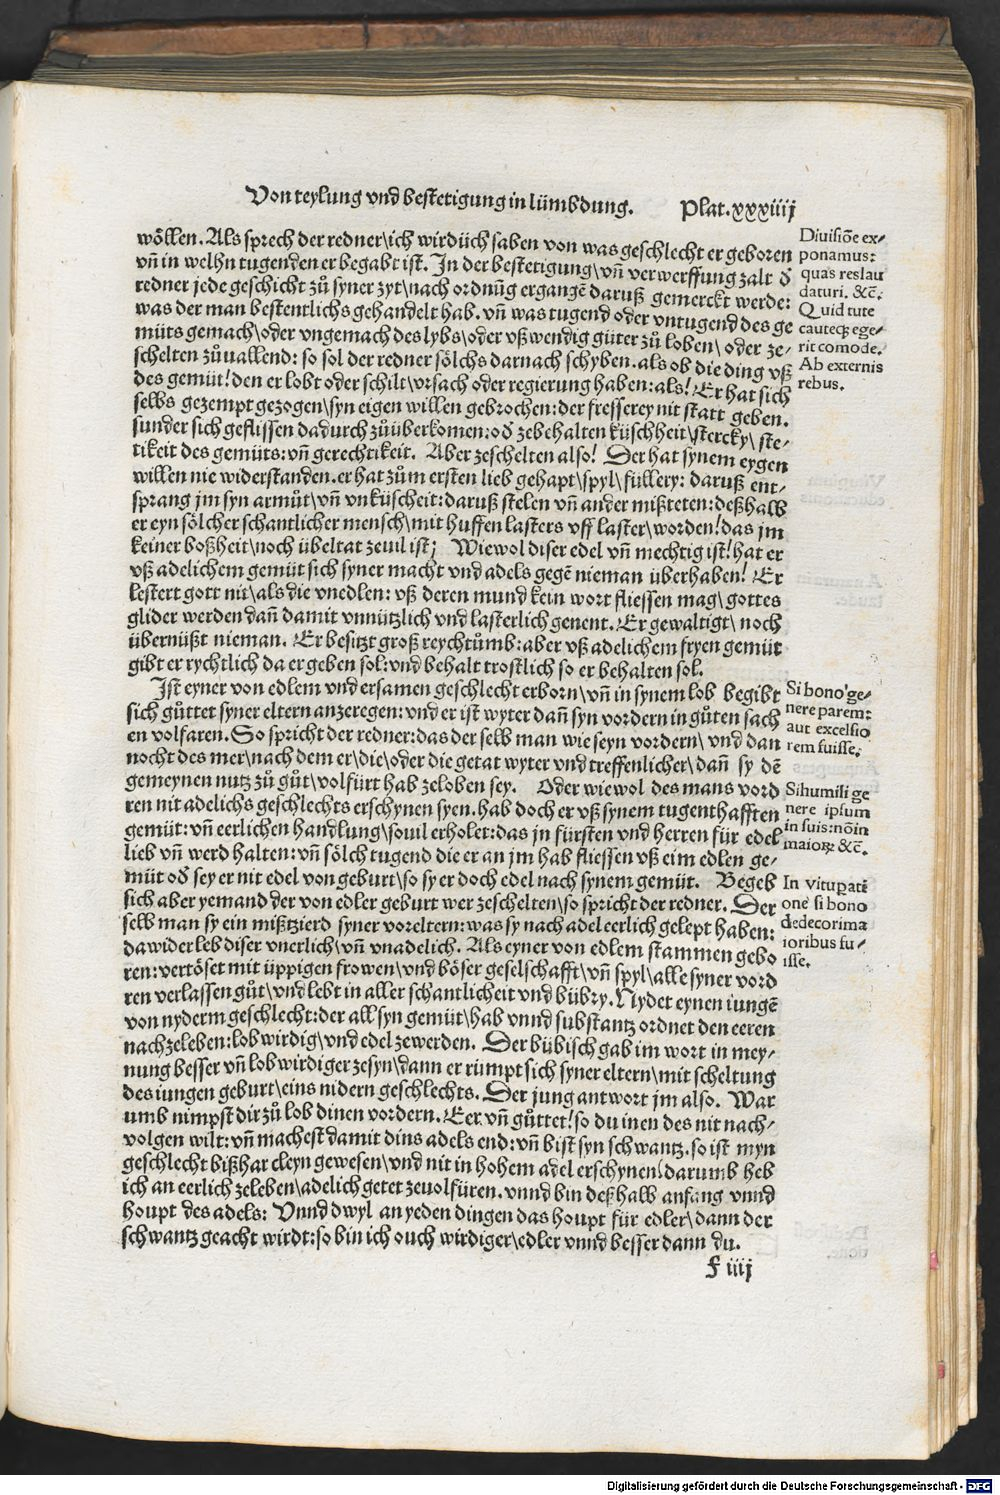 Von teylung vnd bestetigung in lümbdung. Plat. xxxiiij
wöllen. Als sprech der redner\ich wird üch saben von was geschlecht er geboren
vñ in welhn tugenden er begabt ist. In der bestetigung\vñ verwerffung zalt ð
redner jede geschicht zů syner zyt\nach ordnũg ergangẽ daruß gemerckt werde:
was der man bestentlichs gehandelt hab. vñ was tugend oder vntugend des ge
müts gemach\oder vngemach des lybs\oder vßwendig güter zů loben\ oder ze⸗
schelten zůuallend: so sol der redner sölchs darnach schyben. als ob die ding vß
des gemüt! den er lobt oder schilt\vrsach oder regierung haben: als! Er hat sich
selbs gezempt gezogen\syn eigen willen gebrochen: der fresserey nit statt geben.
sunder sich geflissen dadurch zůüberkomen: oð zebehalten küschheit\stercky\ ste⸗
tikeit des gemüts: vñ gerechtikeit. Aber zeschelten also! Der hat synem eygen
willen nie widerstanden. er hat zům ersten lieb gehapt\spyl\füllery: daruß ent⸗
sprang jm syn armůt\vñ vnküscheit: daruß stelen vñ ander mißteten: deßhalb
er eyn sölcher schantlicher mensch\mit huffen lasters vff laster\worden! das jm
keiner boßheit\noch übeltat zeuil ist; Wiewol diser edel vñ mechtig ist! hat er
vß adelichem gemüt sich syner macht vnd adels gegẽ nieman überhaben! Er
lestert gott nit\als die vnedlen: vß deren mund kein wort fliessen mag\gottes
glider werden dañ damit vnnützlich vnd lasterlich genent. Er gewaltigt\ noch
übernüßt nieman. Er besitzt groß reychtůmb: aber vß adelichem fryen gemüt
gibt er rychtlich da er geben sol: vnd behalt trostlich so er behalten sol.
Ist eyner von edlem vnd ersamen geschlecht erborn\vñ in synem lob begibt
sich gůttet syner eltern anzeregen: vnd er ist wyter dañ syn vordern in gůten sach
en volfaren. So spricht der redner: das der selb man wie seyn vordern\ vnd dan
nocht des mer\nach dem er\die\oder die getat wyter vnd treffenlicher\dañ sy dẽ
gemeynen nutz zů gůt\volfürt hab zeloben sey. Oder wiewol des mans vord
ren nit adelichs geschlechts erschynen syen. hab doch er vß synem tugenthafften
gemüt: vñ eerlichen handlung\souil erholet: das jn fürsten vnd herren für edel
lieb vñ werd halten: vñ sölch tugend die er an jm hab fliessen vß eim edlen ge⸗
müt oð sey er nit edel von geburt\so sy er doch edel nach synem gemüt. Begeb
sich aber yemand der von edler geburt wer zeschelten\so spricht der redner. Der
selb man sy ein mißtzierd syner voreltern: was sy nach adel eerlich gelept haben:
da wider leb diser vnerlich\vñ vnadelich. Als eyner von edlem stammen gebo
ren: vertöset mit üppigen frowen\vnd böser geselschafft\vñ spyl\alle syner vord
ren verlassen gůt\vnd lebt in aller schantlicheit vnd bübry. Nydet eynen iungẽ
von nyderm geschlecht: der all syn gemüt\hab vnnd substantz ordnet den eeren
nachzeleben: lobwirdig\vnd edel zewerden. Der bübisch gab im wort in mey⸗
nung besser vñ lobwirdiger zesyn\dann er rümpt sich syner eltern\mit scheltung
des iungen geburt\eins nidern geschlechts. Der jung antwort jm also. War
umb nimpst dir zů lob dinen vordern. Eer vñ gůttet! so du inen des nit nach⸗
volgen wilt: vñ machest damit dins adels end: vñ bist syn schwantz. so ist myn
geschlecht bißhar cleyn gewesen\vnd nit in hohem adel erschynen! darumb heb
ich an eerlich zeleben\adelich getet zeuolfüren. vnnd bin deßhalb anfang vnnd
houpt des adels: Vnnd dwyl an yeden dingen das houpt für edler\dann der
schwantz geacht wirdt: so bin ich ouch wirdiger\edler vnnd besser dann du.
f iiij
Diuisiõe ex⸗
ponamus:
quas res lau
daturi. &c̃.
Quid tute
cauteq; ege⸗
rit comode.
Ab externis
rebus.
Si bono ge⸗
nere parem:
aut excelsio
rem fuisse.
Si humili ge
nere ipsum
in suis: nõ in
maioꝝ &c̃.
In vituꝑatẽ
one si bono
dedecorima
ioribus fu⸗
isse.
Digitalisierung gefördert durch die Deutsche Forschungsgemeinschaft - DFG